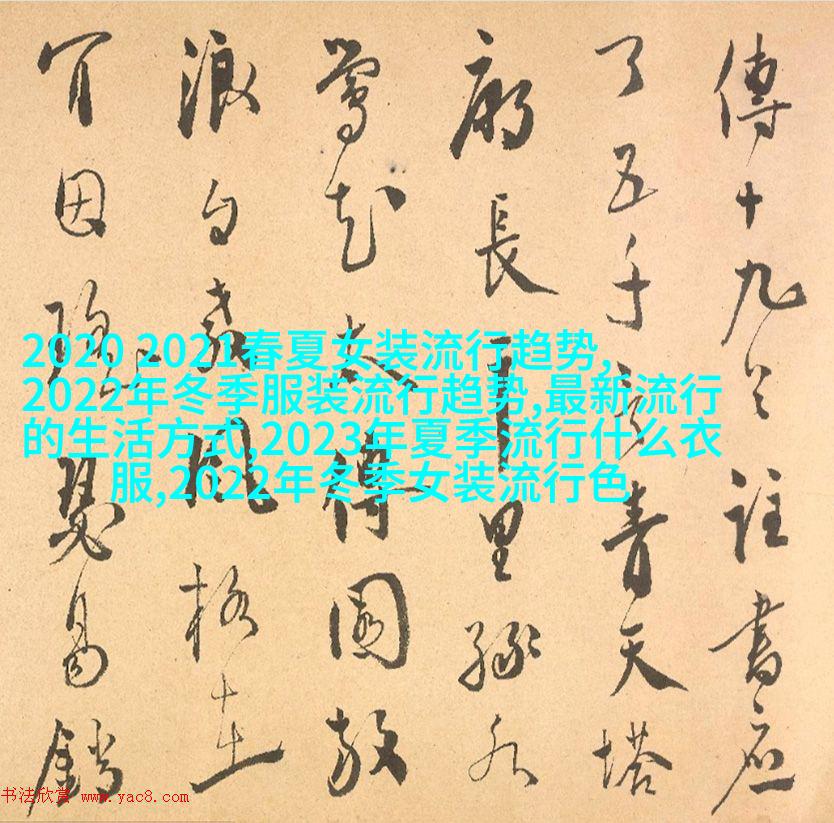 2020 2021春夏女装流行趋势,
2022年冬季服装流行趋势,最新流行
的生活方式,2023年夏季流行什么衣
服,2022年冬季女装流行色
傳十九註書應
了五千言青天塔
長千里水
鶯花太傅園
浪白風格在
因瑟易銷
书法欣赏 www.yac8.com